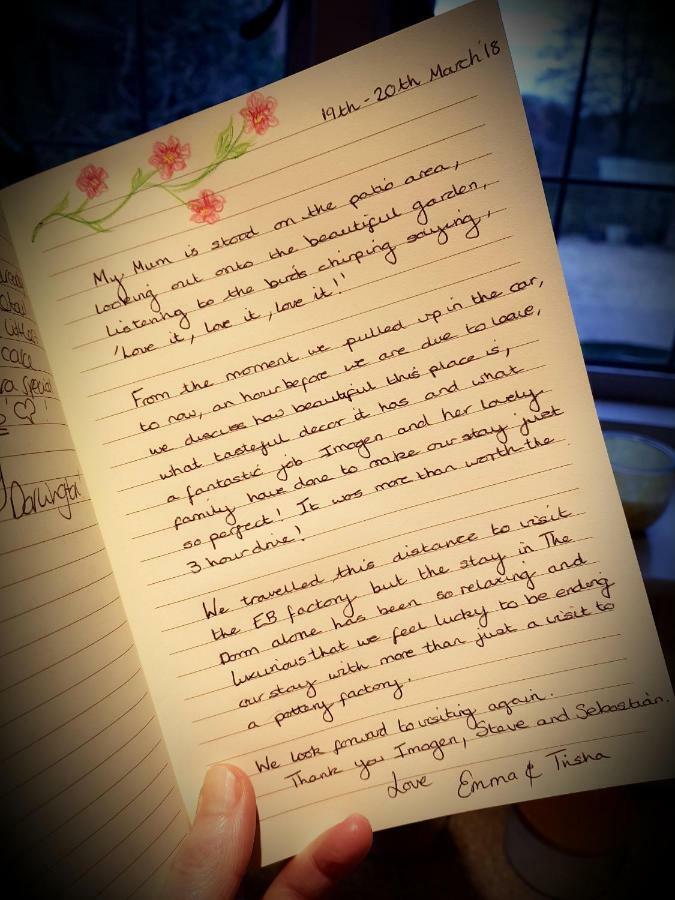 19th - 20th March '18
My Mum is stood on the patio area,
looking out onto the beautiful garden,
listening to the birds chirping saying,
'Love it, love it, love it!'
From the moment we pulled up in the car,
to now, an hour before we are due to leave,
we discuss how beautiful this place is,
what tasteful decor it has and what
a fantastic job Imogen and her lovely
family have done to make our stay just
so perfect! It was more than worth the
3 hour drive!
We travelled this distance to visit
the EB factory but the stay in The
Dorm alone has been so relaxing and
luxurious that we feel lucky to be ending
our stay with more than just a visit to
a pottery factory.
We look forward to visiting again.
Thank you Imogen, Steve and Sebastian.
Love Emma & Trisha
special
Darlington